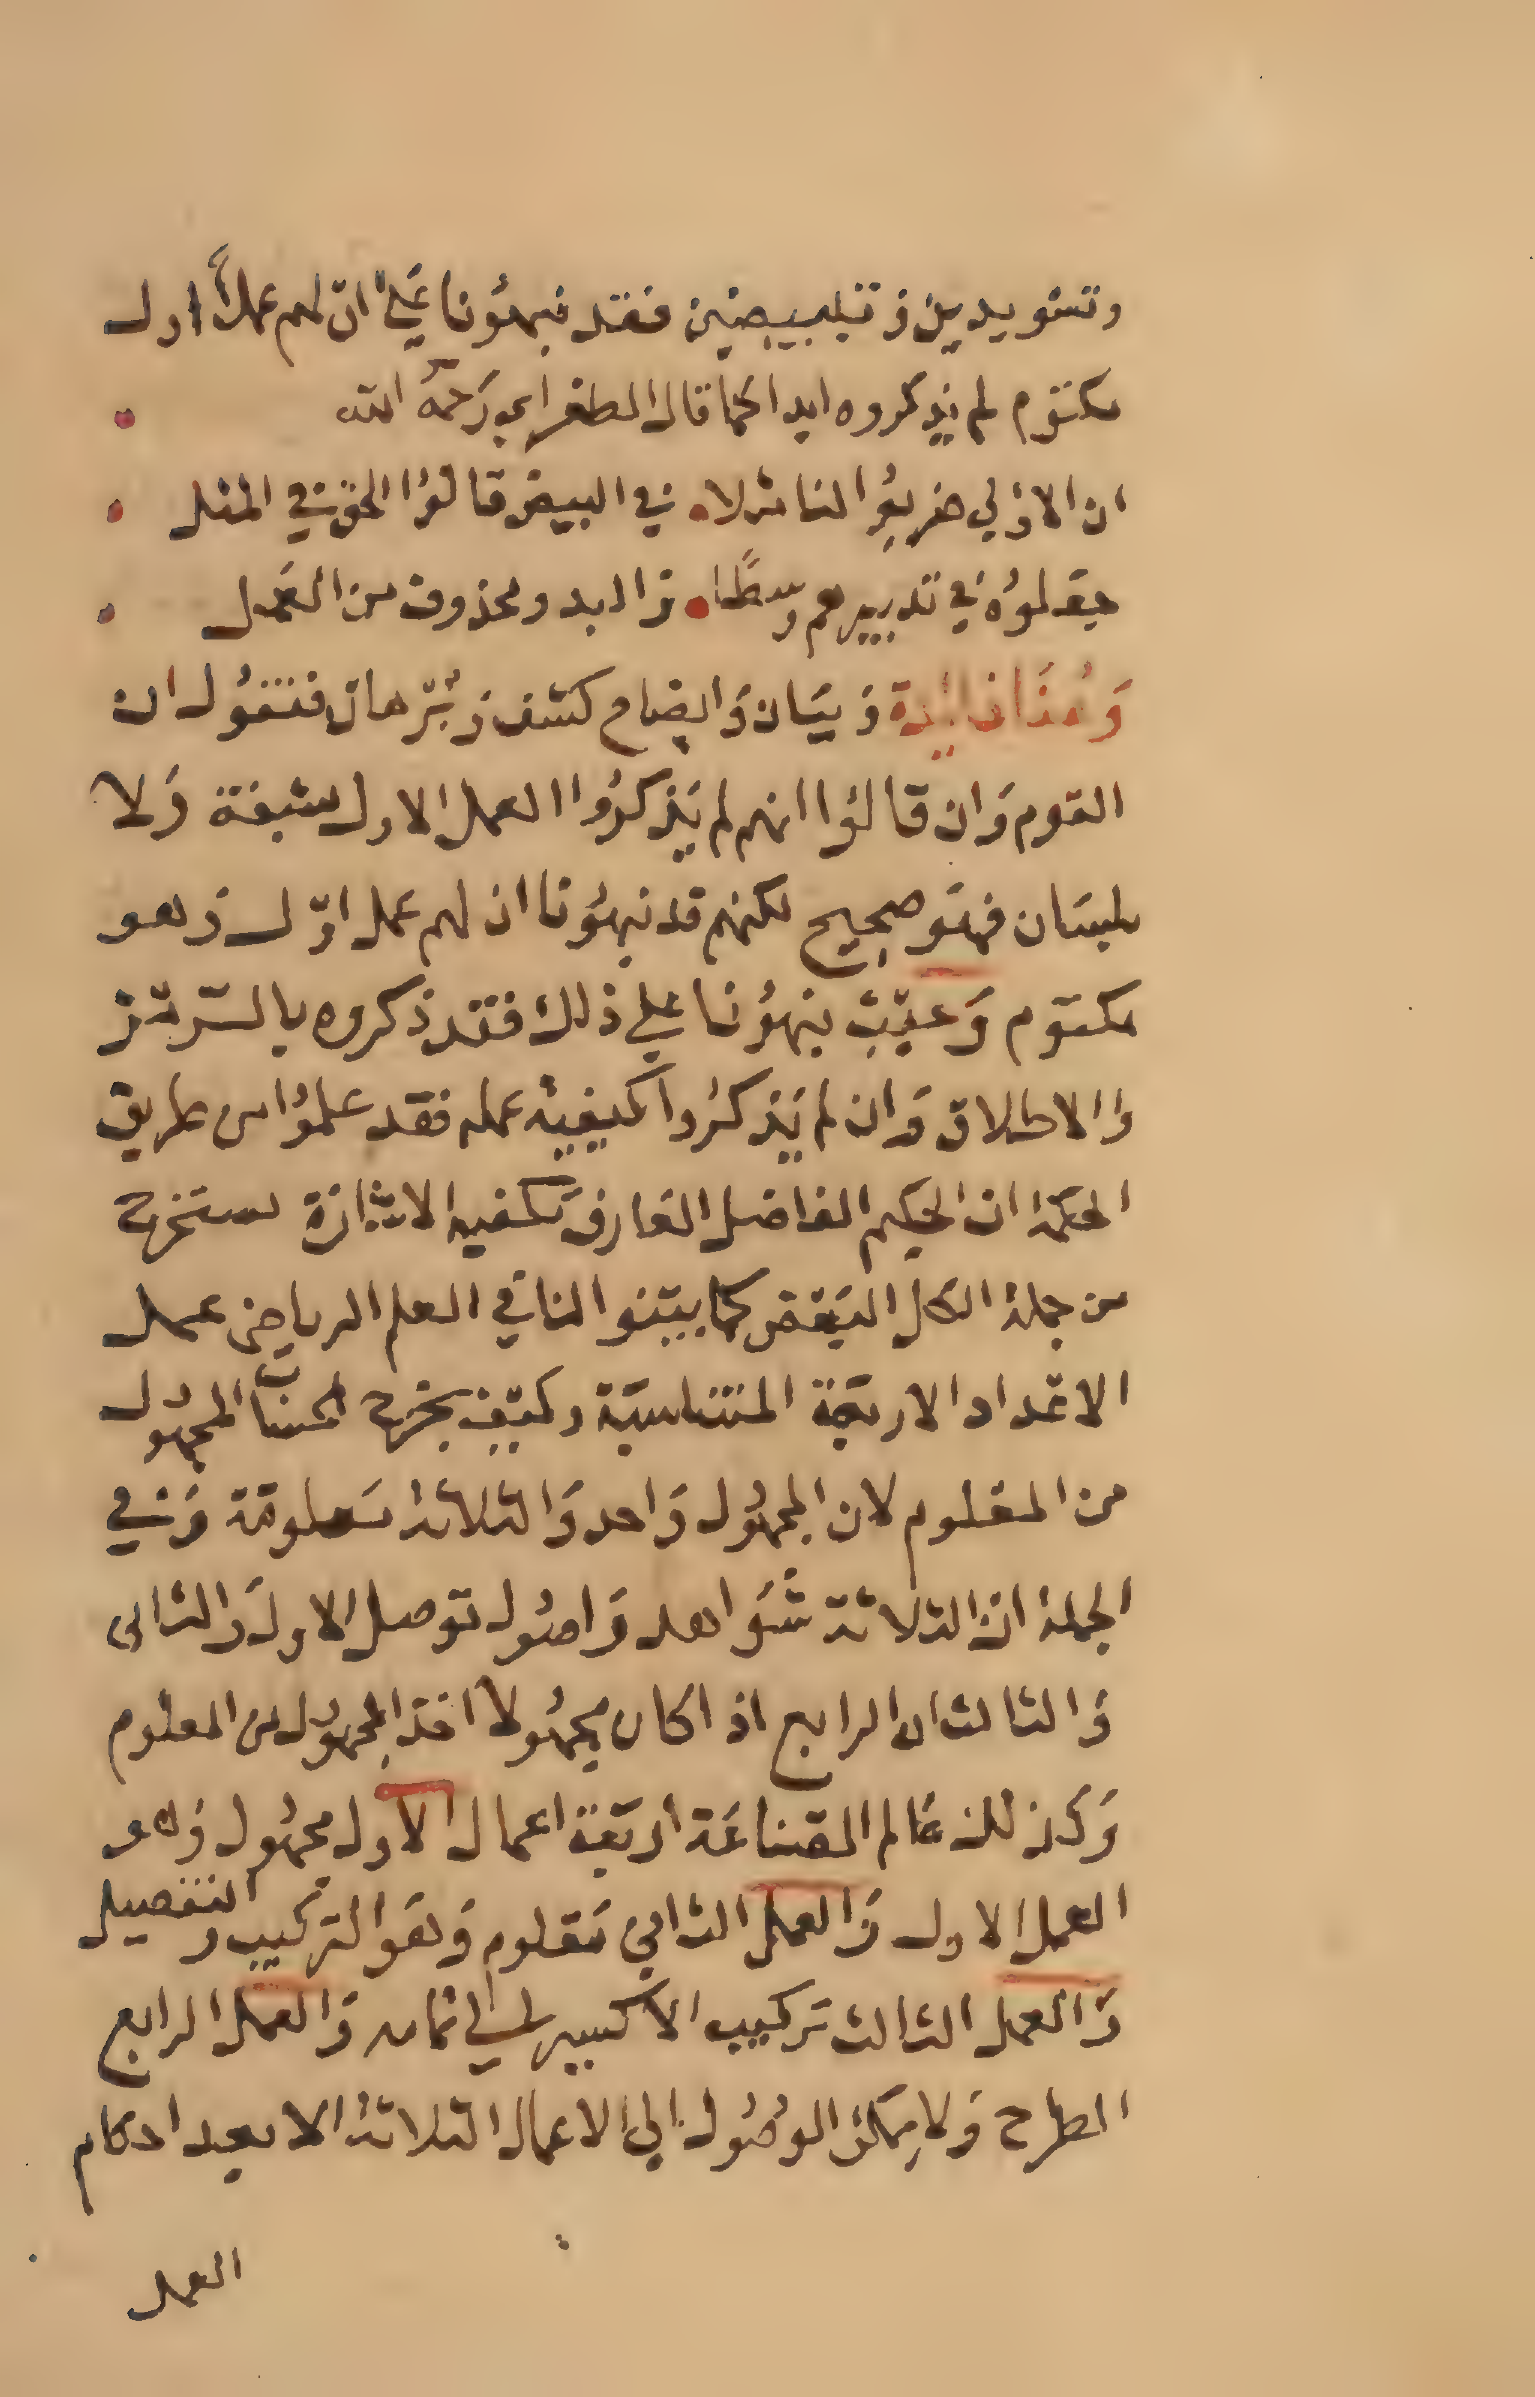 وتسويدين وتبييضين فقد نبهونا على ان لهم عملاً اول
مكتوم لم يذكروه ابدا كما قال الطغراى رحمه الله
ان الاولى ضربوا لنا مثلا في البيض قالوا الحق في المثل
جعلوه في تدبيرهم وسطًا والابد ومحذوف من العمل
وهذا فايدة وبيان وايضاح كشف وبرهان فنقول ان
القوم وان قالوا انهم لم يذكروا العمل الاول بشفة ولا
بلسان فهو صحيح لكنهم قد نبهونا ان لهم عمل اوّل وهو
مكتوم وحيث نبهونا على ذلك فقد ذكروه بال
والاطلاق وان لم يذكروا كيفية عمله فقد علموا من طريق
الحكمة ان الحكيم الفاضل العارف تكفيه الاشارة يستخرج
من جملة الكل البعض كما بينوا لنا في العلم الرياضى عمل
الاعداد الاربعة المتناسبة وكيف يخرج الحساب المجهول
من المعلوم لان المجهول واحد والثلاثة معلومة وفي
الجملة ان الثلاثة شواهد واصول توصل الاول والثانى
والثالث ان الرابع اذا كان مجهولاً اخذ المجهول من المعلوم
وكذلك عالم الصناعة اربعة اعمال الاول مجهول وهو
العمل الاول والعمل الثاني معلوم وهو التركيب والتفصيل
والعمل الثالث تركيب الاكسير والعمل الرابع
الطرح ولا يمكن الوصول الي الاعمال الثلاثة الا بعد احكام
العمل